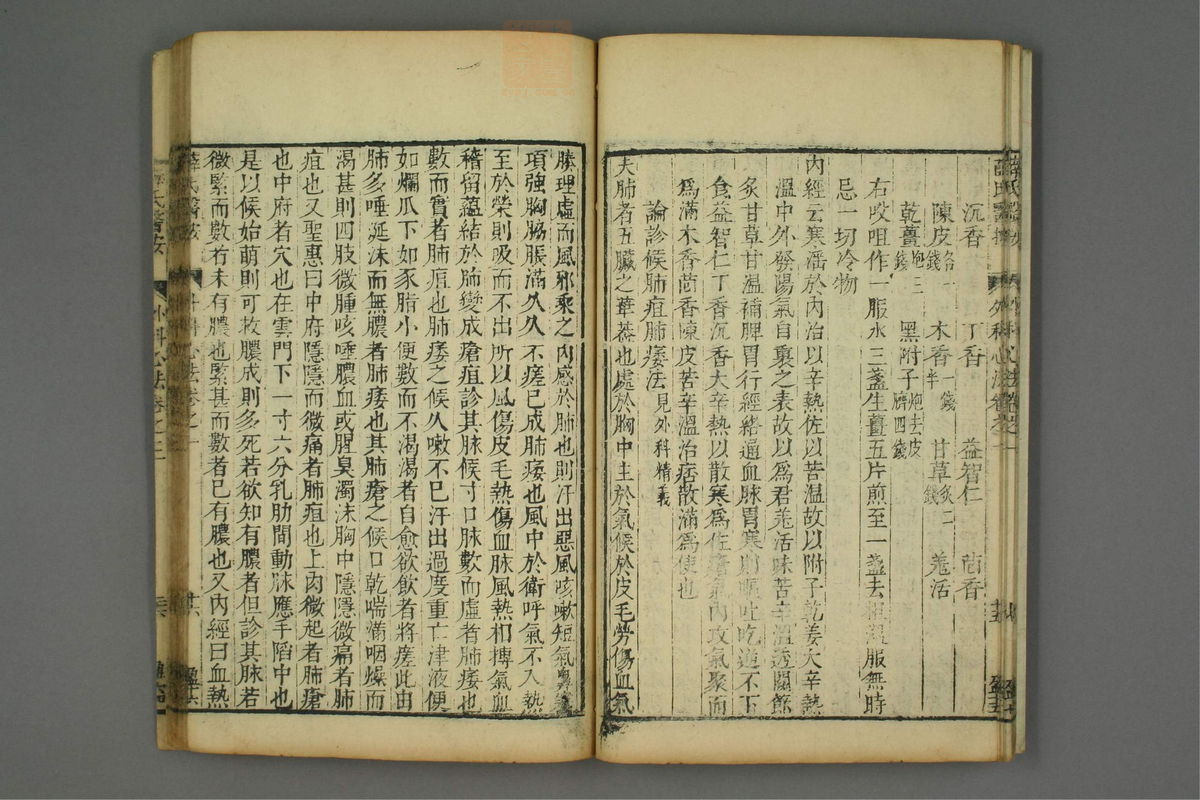 沉香　丁香　益智仁　茴香
陳皮各一錢　木香一錢半　甘草炙二錢　羗活
乾薑炮三錢　黑附子炮去皮臍四錢
右㕮咀作一服水三盞生薑五片煎至一盞去柤溫服無時
忌一切冷物
內經云寒淫於內治以辛熱佐以苦温故以附子乾姜大辛熱
溫中外發陽氣自裏之表故以爲君羗活味苦辛溫透關節
炙甘草甘温補脾胃行經絡通血脉胃寒則嘔吐吃逆不下
食益智仁丁香沉香大辛熱以散寒爲佐𤻤氣內攻氣聚而
爲滿木香茴香陳皮苦辛溫治痞散滿爲使也
論診候肺疽肺痿法見外科精義
夫肺者五臟之華蓋也處於胸中主於氣候於皮毛勞傷血氣
腠理虛而風邪乘之內感於肺也則汗出惡風咳嗽短氣鼻塞
項強胸脇脹滿久久不瘥已成肺痿也風中於衛呼氣不入熱
至於榮則吸而不出所以風傷皮毛熱傷血脉風熱相摶氣血
稽留蘊結於肺變成瘡疽診其脉候寸口脉數而虛者肺痿也
數而實者肺疽也肺痿之候久嗽不已汗出過度重亡津液便
如爛瓜下如豕脂小便數而不渴渴者自愈欲飲者將瘥此由
肺多唾涎沫而無膿者肺痿也其肺瘡之候口乾喘滿咽燥而
渴甚則四肢微腫咳唾膿血或腥臭濁沫胸中隱隱微痛者肺
疽也又聖惠曰中府隱隱而微痛者肺疽也上肉微起者肺瘡
也中府者穴也在雲門下一寸六分乳肋間動脉應手陷中也
是以候始萌則可救膿成則多死若欲知有膿者但診其脉若
微緊而數者未有膿也緊甚而數者已有膿也又內經曰血熱